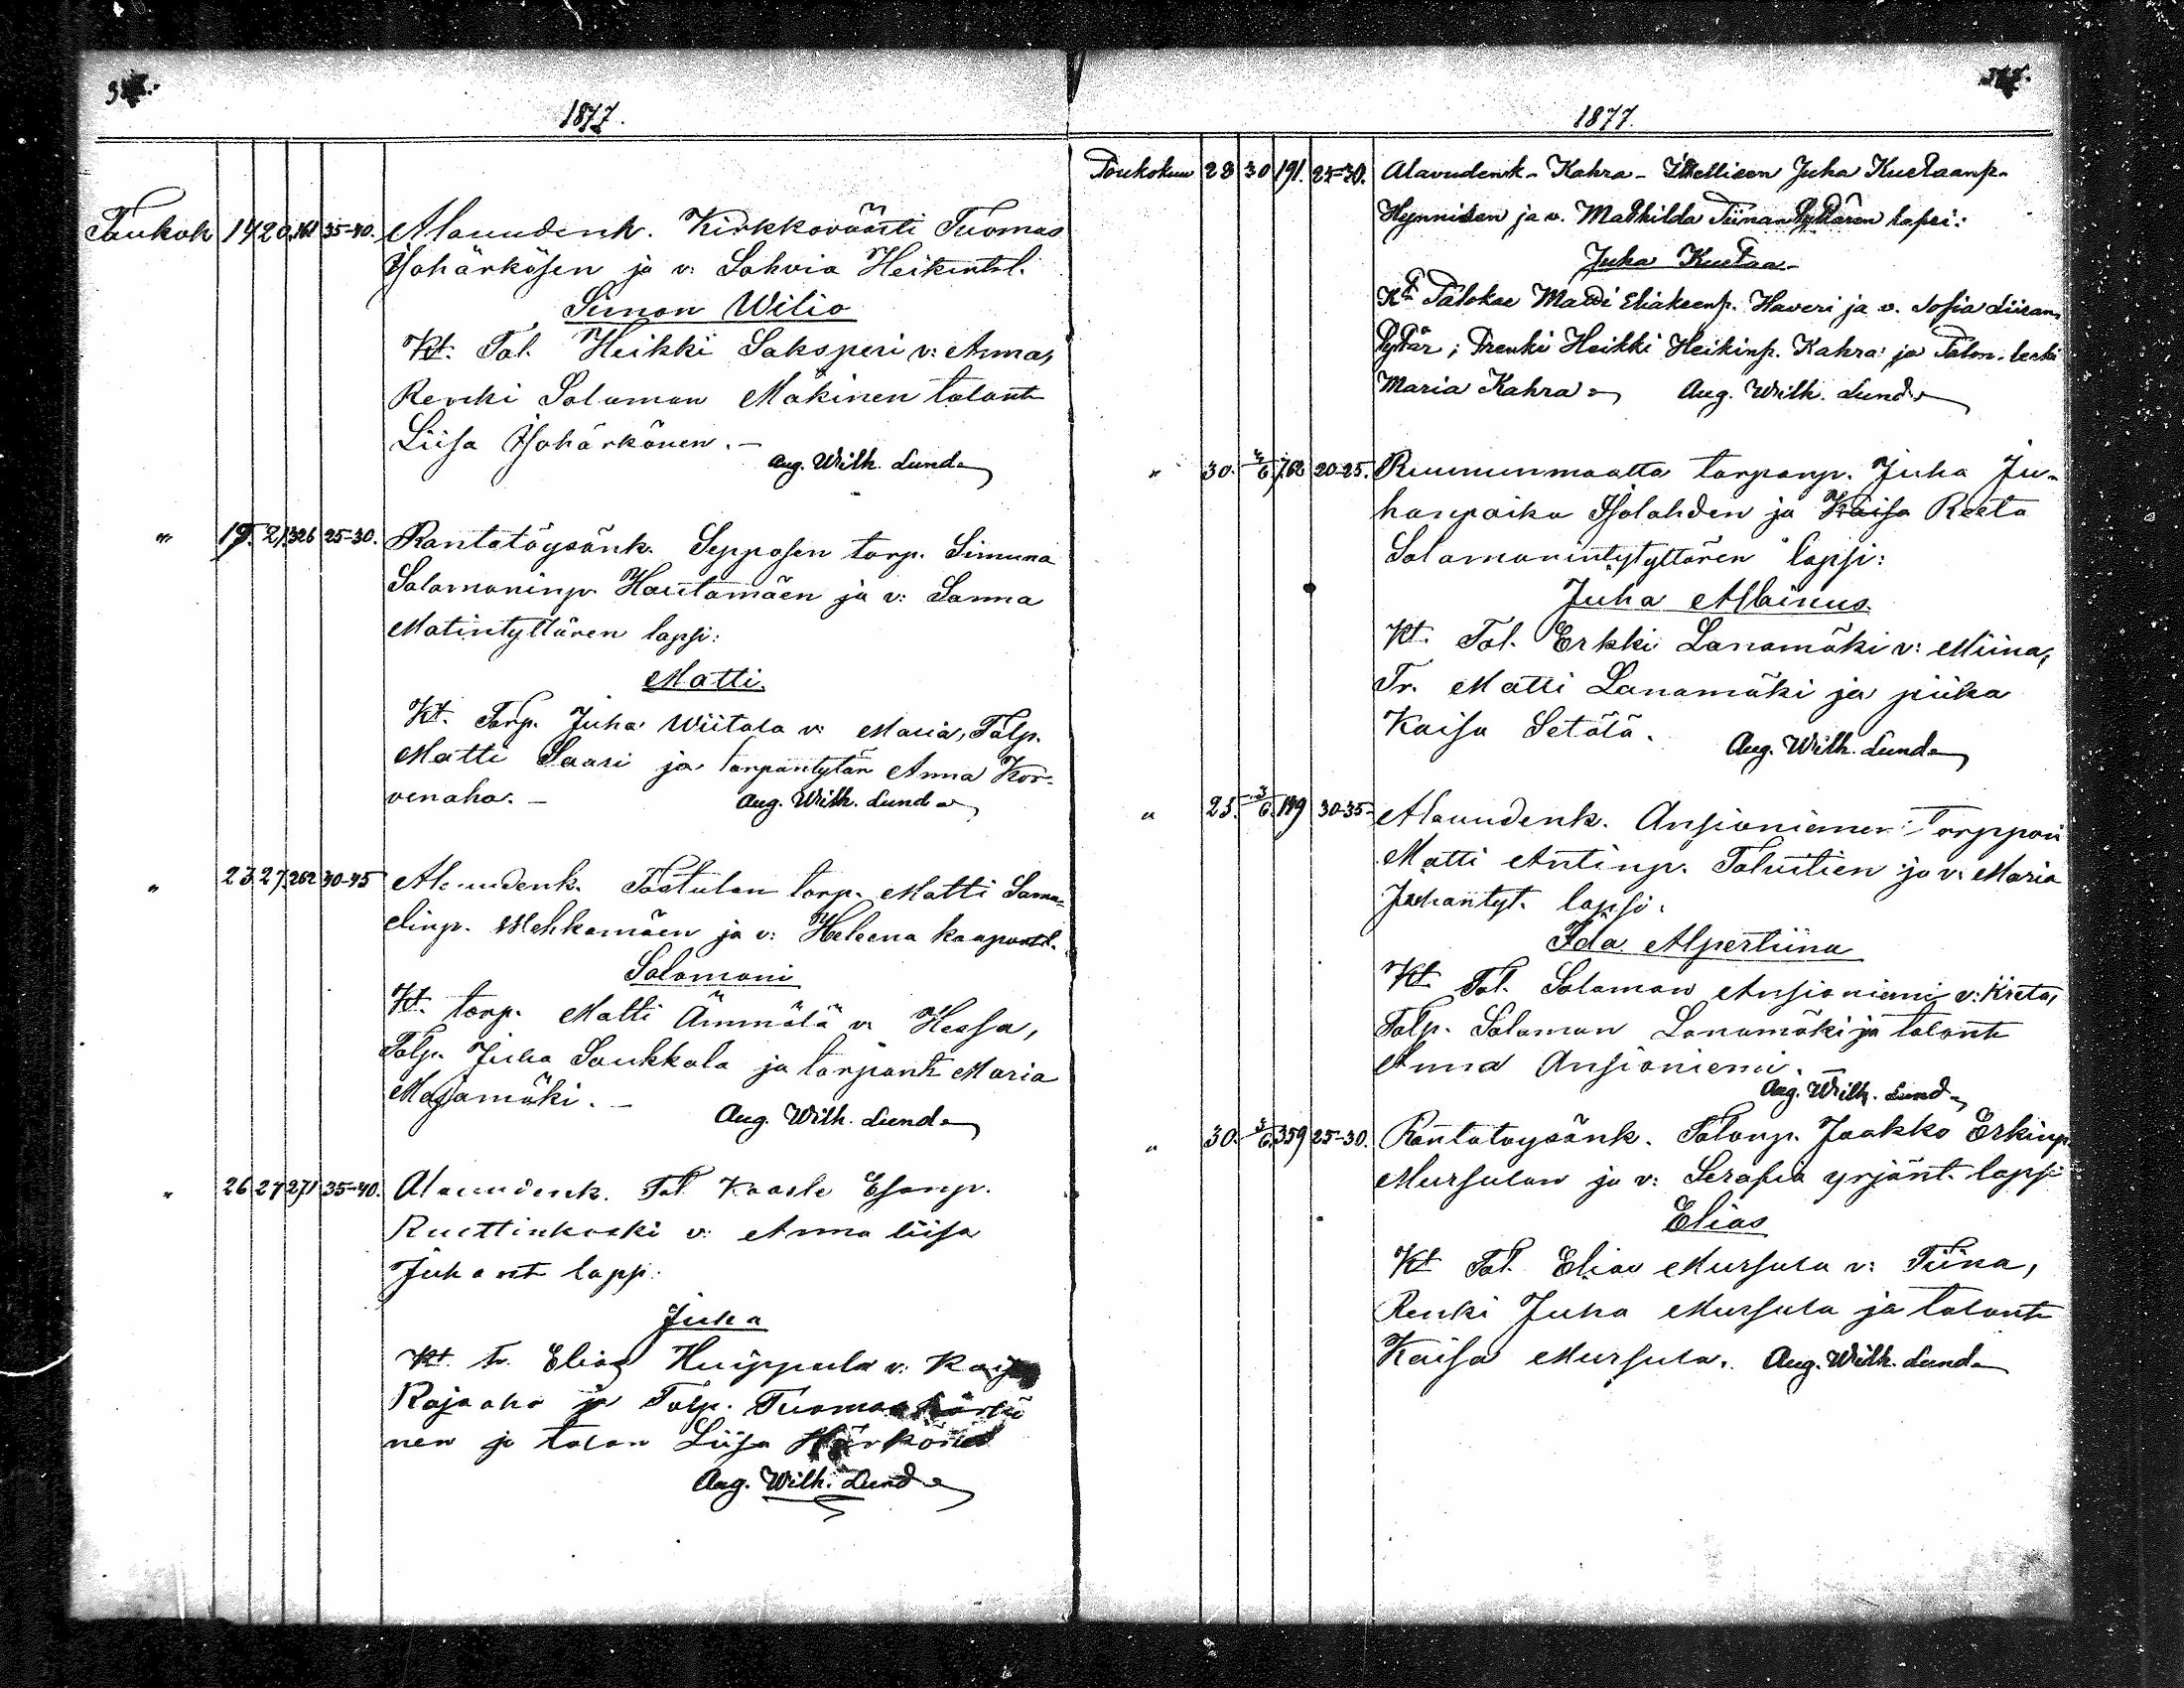 1877.
Toukok 14 20 161 35-40. Alauudenk. Kirkkoväärti Tuomas
Isohärkösen ja v: Sohvia Heikintyl.
Simon Wilio
Kt. Tal. Heikki Saksperi v: Anna,
Renki Saloman Mäkinen talont
Liisa Isohärkönen. —
Aug. Wilh. Lund
" 19. 21. 326 25-30. Rantatöysänk. Sepposen torp. Simuna
Salamoninp. Hautamäen ja v: Sanna
Matintyttären lapsi:
Matti.
Kt. Torp. Juha Wiitala v: Maria, Talp.
Matti Saari ja torpantytär Anna Kor-
venaho. —
Aug. Wilh. Lund
" 23 27. 262 40-45 Alauudenk. Tastulan torp. Matti Samu-
elinp. Mehkamäen ja v: Heleena kaapont.
Salomoni
Kt. torp. Matti Ämmälä v: Heesa,
Talp. Juha Saukkola ja torpant Maria
Majamäki. —
Aug. Wilh. Lund
" 26 27 271 35-40. Alauudenk. Tal. Kaasle Esanp.
Ruettinkoski v: Anna liisa
Juhant lapp:
Juha
Kt. tr. Elias Huippula v: Kaisa
Rajaaho ja Talp. Tuomas Härkö
nen ja talon Liisa Härkönen
Aug. Wilh. Lund
1877.
Toukokuu 28 30 191. 25-30. Alavudenk - Kahra - Itsellisen Juha Kustaanp.
Hynnisen ja v. Mathilda Tiinantyttären lapsi:
Juha Kustaa
Kt Talokas Matti Eliakeenp. Haveri ja v. Sofia Liisan
tytär; Drenki Heikki Heikinp. Kahra ja Talon. leski
Maria Kahra
Aug. Wilh. Lund
" 30. 3/6. 768 20-25. Ruununmaatta torpanp. Juha Ju-
hanpoika Isolahden ja Kaisa Reeta
Salamonintytyttären lapsi:
Juha Albinus.
Kt. Tal. Erkki Lanamäki v: Miina,
Tr. Matti Lanamäki ja piika
Kaisa Setälä.
Aug. Wilh. Lund
" 25. 3/6. 189 30-35 Alauudenk. Ansioniemen Torppari
Matti Antinp. Talvitien ja v: Maria
Juhantyt. lapsi.
Ida Alpertiina
Kt. Tal. Saloman Ansioniemi v: Kreta,
Talp. Saloman Lanamäki ja talont
Anna Ansioniemi. —
Aug. Wilh. Lund
" 30. 3/6. 359 25-30. Rantatoysänk. Talonp. Jaakko Erkinp
Mursulan ja v: Serafia yrjänt. lapsi
Elias
Kt Tal. Elias Mursula v: Tiina,
Renki Juha Mursula ja talont
Kaisa Mursula.
Aug. Wilh. Lund